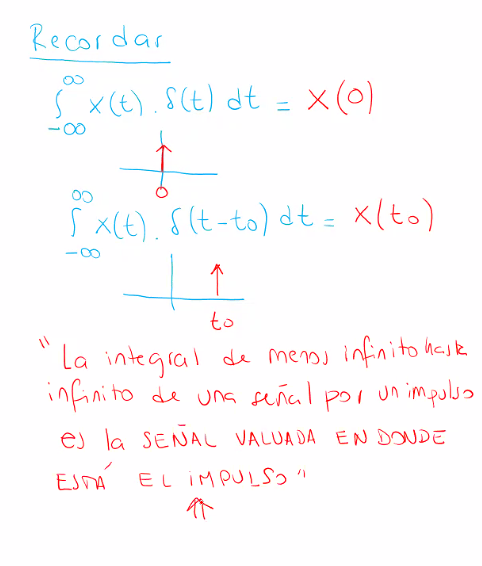 Recordar
∫_{-∞}^{∞} x(t) . δ(t) dt = x(0)
0
∫_{-∞}^{∞} x(t) . δ(t-t0) dt = x(t0)
t0
"La integral de menos infinito hasta
infinito de una señal por un impulso
es la SEÑAL VALUADA EN DONDE
ESTÁ EL IMPULSO"